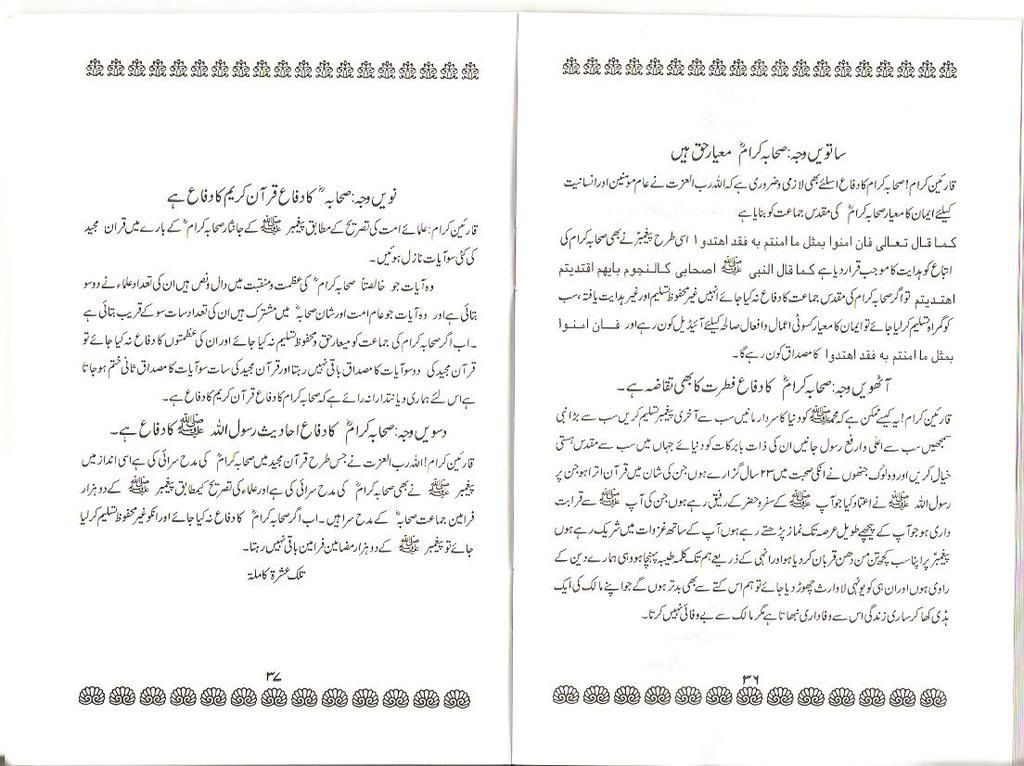 ساتویں وجہ: صحابہ کرامؓ معیار حق ہیں
قارئین کرام! صحابہ کرام کا دفاع اسلئے بھی لازمی وضروری ہے کہ اللہ رب العزت نے عام مومنین اور انسانیت
کیلئے ایمان کا معیار صحابہ کرامؓ کی مقدس جماعت کو بنایا ہے
کما قال تعالی فان امنوا بمثل ما امنتم به فقد اهتدوا اسی طرح پیغمبرؐ نے بھی صحابہ کرام کی
اتباع کو ہدایت کا موجب قرار دیا ہے کما قال النبی ﷺ اصحابی کالنجوم بایهم اقتدیتم
اهتدیتم تو اگر صحابہ کرام کی مقدس جماعت کا دفاع نہ کیا جائے انہیں غیر محفوظ تسلیم اور غیر ہدایت یافتہ، سب
کو گمراہ تسلیم کر لیا جائے تو ایمان کا معیار کسوٹی اعمال وافعال صالحہ کیلئے آئیڈیل کون رہے اور فان امنوا
بمثل ما امنتم به فقد اهتدوا کا مصداق کون رہے گا۔
آٹھویں وجہ: صحابہ کرامؓ کا دفاع فطرت کا بھی تقاضہ ہے۔
قارئین کرام! یہ کیسے ممکن ہے کہ محمدﷺ کو دنیا کا سردار مانیں سب سے آخری پیغمبر تسلیم کریں سب سے بڑا نبی
سمجھیں سب سے اعلی وارفع رسول جانیں ان کی ذات بابرکات کو دنیائے جہاں میں سب سے مقدس ہستی
خیال کریں اور وہ لوگ جنھوں نے انکی صحبت میں ۲۳ سال گزارے ہوں جن کی شان میں قرآن اترا ہو جن پر
رسول اللہ ﷺ نے اعتماد کیا جو آپ ﷺ کے سفر و حضر کے رفیق رہے ہوں جن کی آپ ﷺ سے قرابت
داری ہو جو آپ کے پیچھے طویل عرصہ تک نماز پڑھتے رہے ہوں آپ کے ساتھ غزوات میں شریک رہے ہوں
پیغمبرؐ پر اپنا سب کچھ تن من دھن قربان کر دیا ہو اور انہی کے ذریعے ہم تک کلمہ طیبہ پہنچا ہو وہی ہمارے دین کے
راوی ہوں اور ان ہی کو یونہی لاوارث چھوڑ دیا جائے تو ہم اس کتے سے بھی بدتر ہوں گے جو اپنے مالک کی ایک
ہڈی کھا کر ساری زندگی اس سے وفاداری نبھاتا ہے مگر مالک سے بے وفائی نہیں کرتا۔
۳۶
نویں وجہ: صحابہؓ کا دفاع قرآن کریم کا دفاع ہے
قارئین کرام: علمائے امت کی تصریح کے مطابق پیغمبر ﷺ کے جانثار صحابہ کرامؓ کے بارے میں قران مجید
کی کئی سو آیات نازل ہوئیں۔
وہ آیات جو خالصتاً صحابہ کرامؓ کی عظمت و منقبت میں دال ونص ہیں ان کی تعداد علماء نے دو سو
بتائی ہے اور وہ آیات جو عام امت اور شان صحابہؓ میں مشترک ہیں ان کی تعداد سات سو کے قریب بتائی ہے
۔ اب اگر صحابہ کرام کی جماعت کو معیار حق ومحفوظ تسلیم نہ کیا جائے اور ان کی عظمتوں کا دفاع نہ کیا جائے تو
قرآن مجید کی دو سو آیات کا مصداق باقی نہیں رہتا اور قرآن مجید کی سات سو آیات کا مصداق ثانی ختم ہو جاتا
ہے اس لئے ہماری دیانتدارانہ رائے ہے کہ صحابہ کرام کا دفاع قرآن کریم کا دفاع ہے۔
دسویں وجہ: صحابہ کرامؓ کا دفاع احادیث رسول اللہ ﷺ کا دفاع ہے۔
قارئین کرام! اللہ رب العزت نے جس طرح قرآن مجید میں صحابہ کرامؓ کی مدح سرائی کی ہے اسی انداز میں
پیغمبر ﷺ نے بھی صحابہ کرامؓ کی مدح سرائی کی ہے اور علماء کی تصریح کیمطابق پیغمبر ﷺ کے دو ہزار
فرامین جماعت صحابہؓ کے مدح سرا ہیں۔ اب اگر صحابہ کرامؓ کا دفاع نہ کیا جائے اور انکو غیر محفوظ تسلیم کر لیا
جائے تو پیغمبر ﷺ کے دو ہزار مضامین فرامین باقی نہیں رہتا۔
تلک عشرة کاملة
۳۷